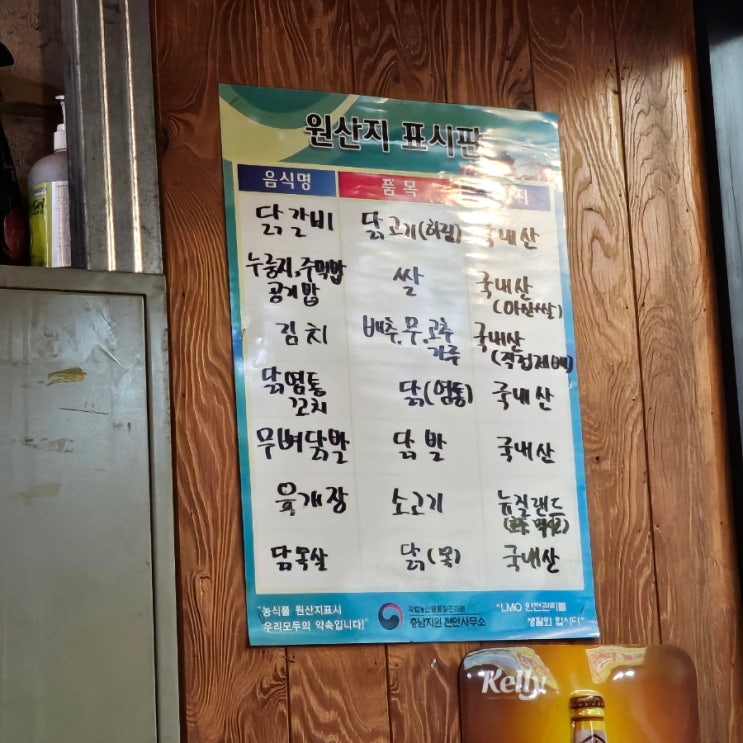 원산지 표시판
음식명 품목
닭갈비 닭고기(하림) 국내산
누룽지.주먹밥 쌀 국내산
공기밥 (아산쌀)
김치 배추.무.고추 국내산
가루 (직접재배)
닭염통 닭(염통) 국내산
꼬치
무뼈닭발 닭발 국내산
육개장 소고기 뉴질랜드
닭목살 닭(목) 국내산
"농식품 원산지표시
우리모두의 약속입니다!"
국립농산물품질관리원
충남지원 천안사무소
"LMO 안전관리를
생활화 합시다"
Kelly